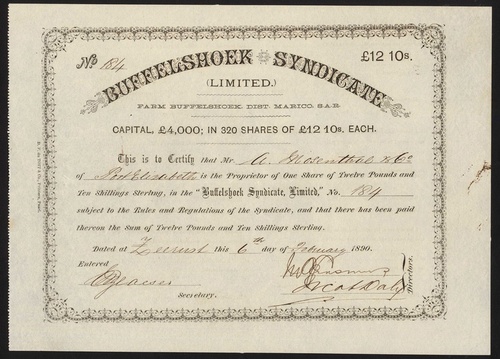 No 184
£12 10s.
BUFFELSHOEK SYNDICATE
(LIMITED.)
FARM BUFFELSHOEK, DIST. MARICO, S.A.R.
CAPITAL, £4,000; IN 320 SHARES OF £12 10s. EACH.
This is to Certify that Mr. A. Mosenthal & Co
of Port Elizabeth is the Proprietor of One Share of Twelve Pounds and
Ten Shillings Sterling, in the "Buffelshoek Syndicate, Limited," No. 184
subject to the Rules and Regulations of the Syndicate, and that there has been paid
thereon the Sum of Twelve Pounds and Ten Shillings Sterling.
Dated at Zeerust this 6th day of February 1890.
Entered
Secretary.
Directors.